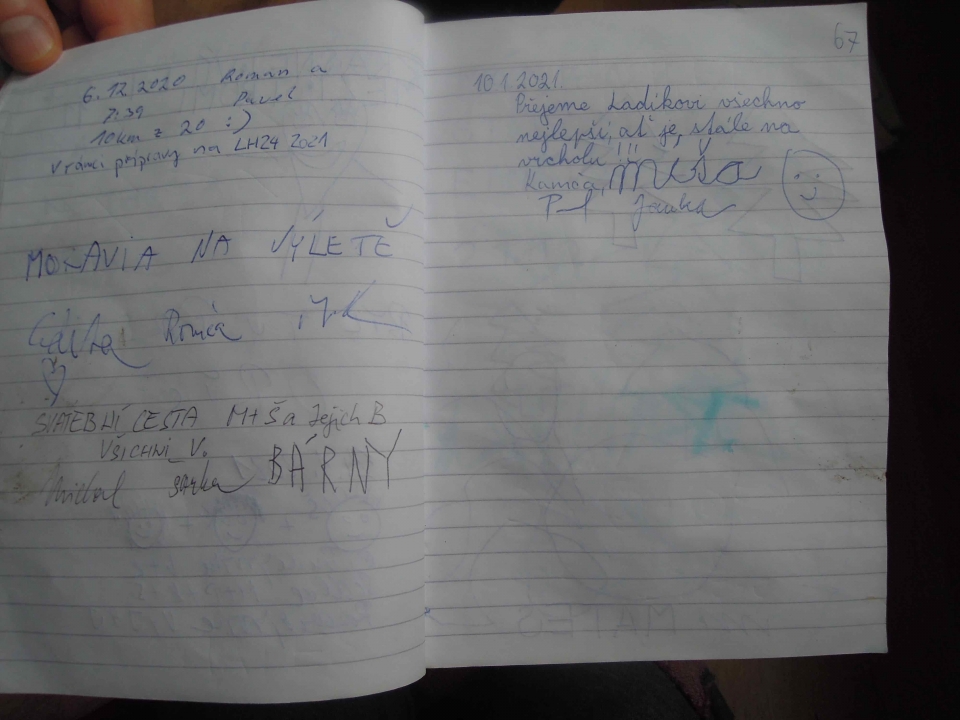 6.12.2020 Roman a
7:39 Pavel
10km z 20 :)
V rámci přípravy na LH24 2021
MORAVIA NA VÝLETĚ
Romča
SVATEBNÍ CESTA M+Š a Jejich B
VŠICHNI V.
Michal Šárka BÁRNY
67
10.1.2021.
Přejeme Ladíkovi všechno
nejlepší, ať je, stále na
vrcholu!!!
Kamča, Míša